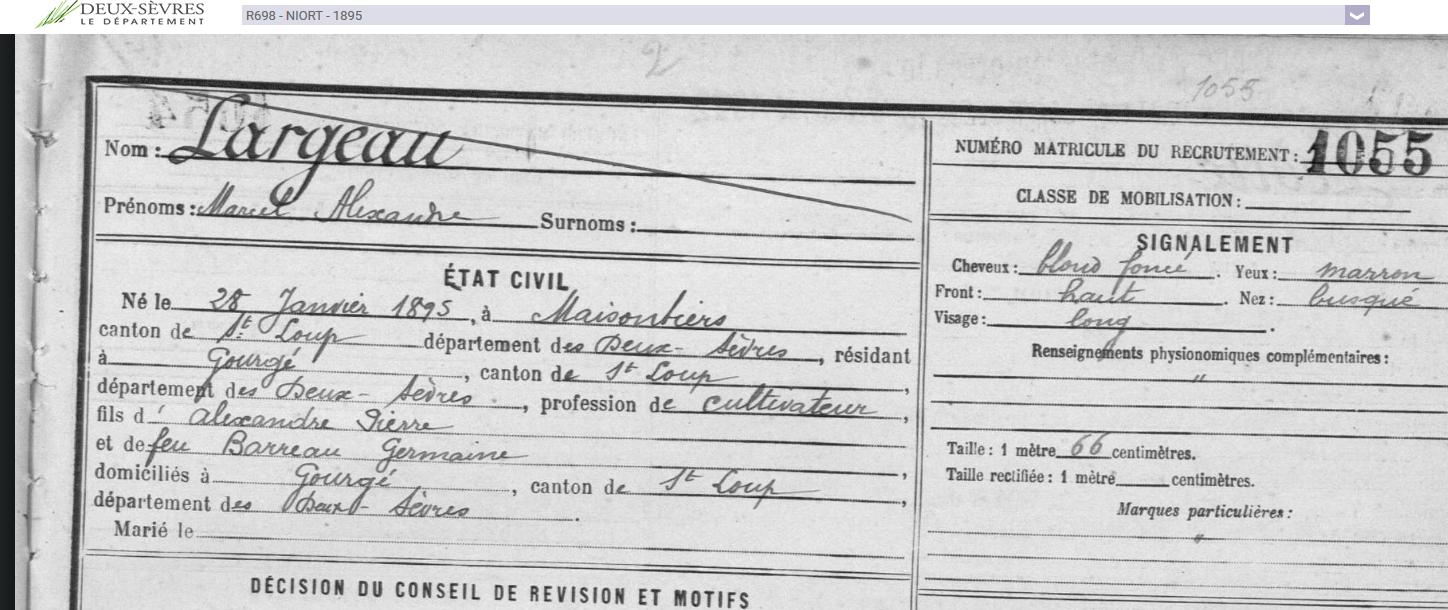 DEUX-SÈVRES
LE DÉPARTEMENT
R698 - NIORT - 1895
2
1055
Nom : Largeau
Prénoms : Marcel Alexandre Surnoms :
ÉTAT CIVIL
Né le 28 Janvier 1895, à Maisontiers
canton de St Loup département des Deux-Sèvres, résidant
à Gourgé, canton de St Loup,
département des Deux-Sèvres, profession de cultivateur,
fils d' Alexandre Pierre
et de feu Barreau Germaine,
domiciliés à Gourgé, canton de St Loup,
département des Deux-Sèvres.
Marié le
DÉCISION DU CONSEIL DE REVISION ET MOTIFS
NUMÉRO MATRICULE DU RECRUTEMENT : 1055
CLASSE DE MOBILISATION :
SIGNALEMENT
Cheveux : blond foncé. Yeux : marron
Front : haut. Nez : busqué
Visage : long.
Renseignements physionomiques complémentaires :
"
Taille : 1 mètre 66 centimètres.
Taille rectifiée : 1 mètre centimètres.
Marques particulières :
"